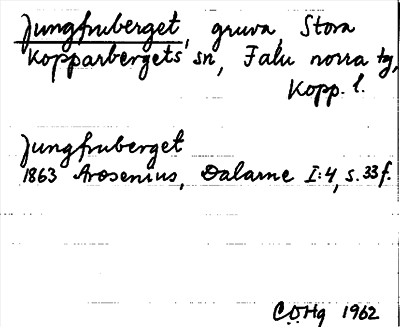 Jungfruberget, gruva, Stora
Kopparbergets sn, Falu norra tg,
Kopp. l.
Jungfruberget
1863 Arosenius, Dalarne I:4, s. 33 f.
CDHg 1962